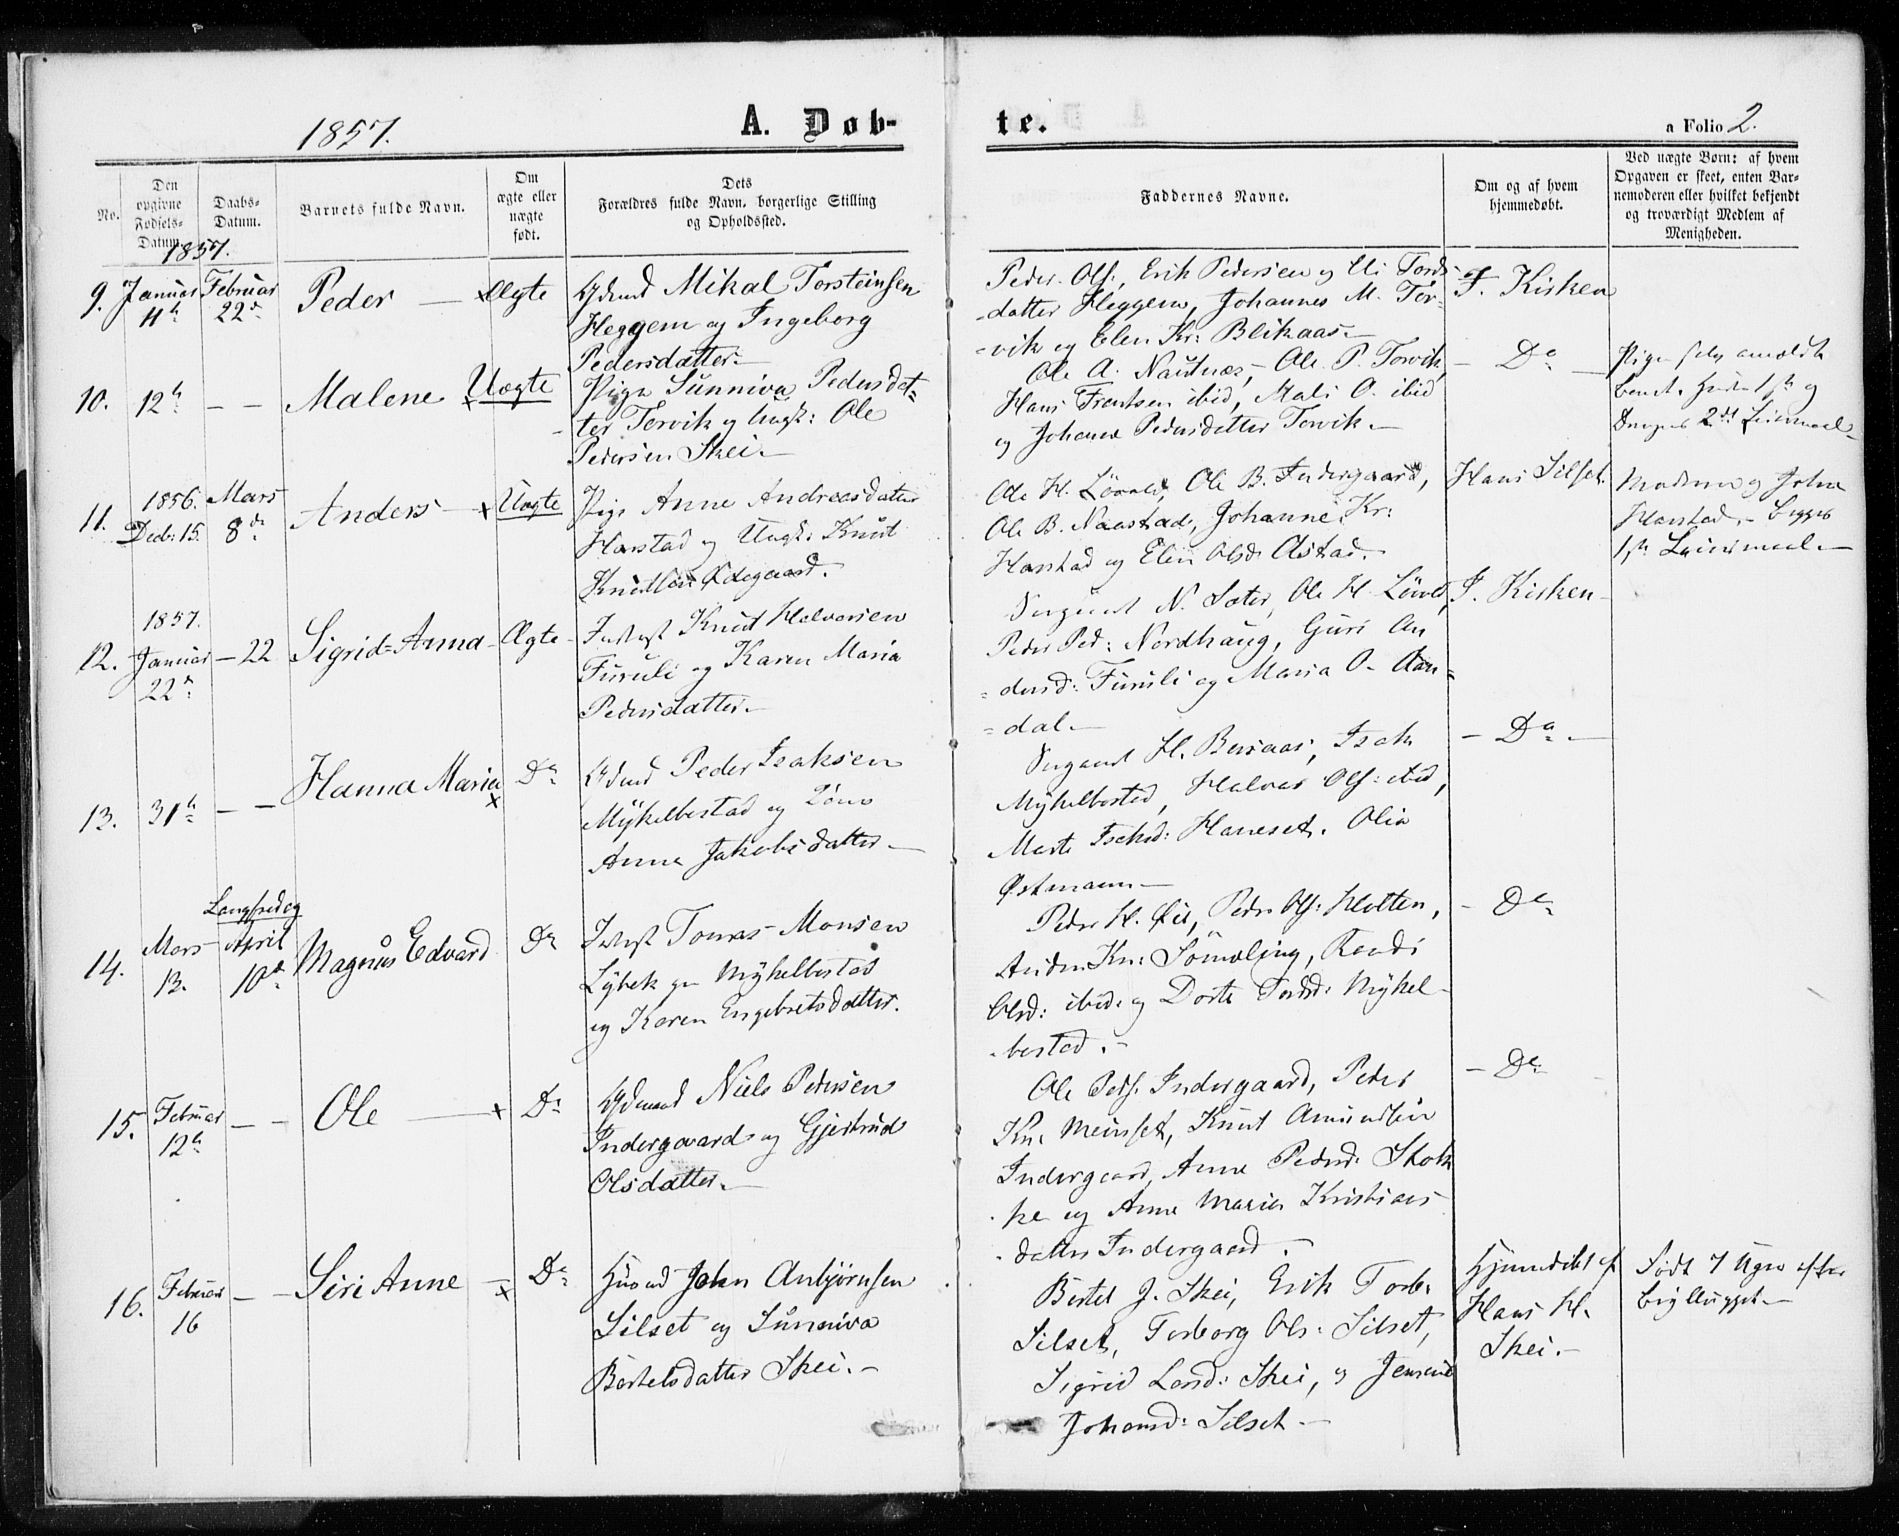 1857.
A. Døb-
te.
a Folio 2.
No.
Den
opgivne
Fødsels-
Datum.
Daabs-
Datum.
Barnets fulde Navn.
Om
ægte eller
uægte
født.
Dets
Forældres fulde Navn, borgerlige Stilling
og Opholdssted.
Faddernes Navne.
Om og af hvem
hjemmedøbt.
Ved uægte Børn: af hvem
Opgaven er skeet, enten Bar-
nemoderen eller hvilket bekjendt
og troværdigt Medlem af
Menigheden.
1857.
9. Januar
11te
Februar
22de
Peder — x Ægte
Gdmd Mikal Torsteinsen
Heggem og Ingeborg
Pedersdatter. —
Peder Ols., Erik Pedersen og Tords-
datter Heggem, Johannes M. Tor-
vik og Elen Kr: Blikaas. —
I. Kirken
10. 12te — — Malene x Uægte
Pige Sunniva Pedersdat-
ter Torvik og Ungk: Ole
Pedersen Skei. —
Ole A. Nautnes, — Ole P. Torvik,
Hans Frentsen ibid, Mali O. ibid
og Johanna Pedersdatter Torvik. —
— Do —
Pigen selv anmeldt
1ste og
2det Leiermaal. —
11. 1856.
Decb: 15.
Mars
8de
Anders — x Uægte
Pige Anne Andreasdatter
Harstad og Ungk: Knut
Knudsen Ødegaard.
Ole H. Løvold, Ole B. Indergaard,
Ole B. Naastad, Johanne Kr:
Harstad og Elen Olsd: Astad.
Hans Silset.
Moderen og John
Harstad. — begges
1ste Leiermaal. —
12. 1857.
Januar
22de
— 22 Sigrid-Anna — Ægte —
Indst Knut Halvorsen
Furuli og Karen Maria
Pedersdatter. —
Sergeant N. Sæter, Ole H. Løvold,
Peder Ped: Nordhaug, Guri An
dersd: Furuli og Maria O. Aan-
dal. —
I. Kirken —
13. 31te — — Hanna Maria x Do
Gdmd Peder Isaksen
Myklebostad og Kone
Anne Jakobsdatter —
Sergeant H. Bersaas, Isak
Myklebostad, Halvor Ols: ibid,
Marte Isaksd: Haneset. Olia
Østmann. —
— Do —
14. Mars
13.
Langfredag
April
10de
Magnus Edvard Do
Indst Tomas Monsen
Lybek Myklebostad
og Karen Engebretsdatter.
Peder H. Øie, Peder Ols: Holten,
Anders Kn: Sømeling, Randi
Olsd: ibid: og Dorte Tordsd: Mykel-
bostad. —
— Do
15. Februar
12te
— — Ole — x Do
Gdmand Niels Pedersen
Indergaard og Gjertrud
Olsdatter. —
Ole Peds: Indergaard, Peder
Kn: Meinset, Knut Amundsen
Indergaard, Anne Pedersd: Skok
ke og Anne Maria Kristians
datter Indergaard.
— Do
16. Februar
16
— — Siri Anne — x Do
Husmd John Anbjørnsen
Silset og Sunniva
Bertelsdatter Skei. —
Bertel J. Skei, Erik Torb:
Silset, Torborg Ols: Silset,
Sigrid Larsd: Skei, og Jensine
Johansd: Silset —
Hjemmedøbt af
Hans H.
Skei. —
Født 7 Uger efter
Brylluppet. —